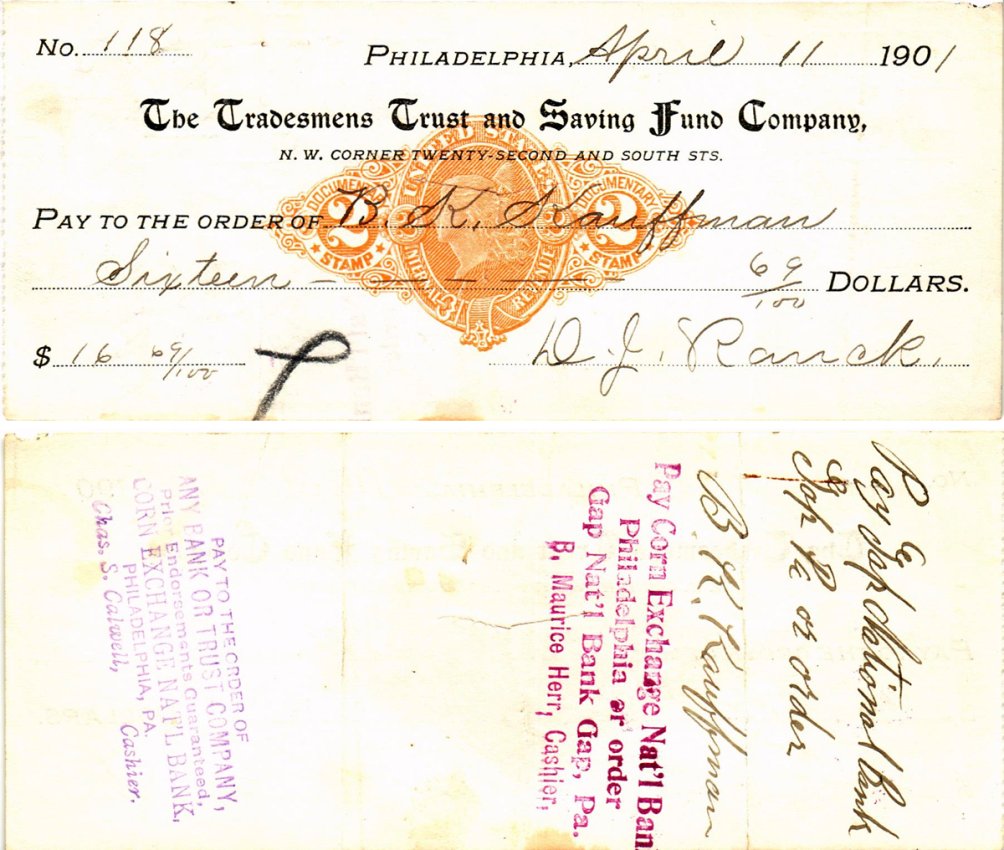 No. 118 PHILADELPHIA, April 11 1901
The Tradesmens Trust and Saving Fund Company,
N. W. CORNER TWENTY-SECOND AND SOUTH STS.
UNITED STATES
DOCUMENTARY 2 STAMP
DOCUMENTARY 2 STAMP
INTERNAL REVENUE
PAY TO THE ORDER OF B. K. Kauffman
Sixteen 69/100 DOLLARS.
$ 16 69/100 D. J. Ranck.
Pay Gap National Bank
Gap Pa or order
B. K. Kauffman
Pay Corn Exchange Nat'l Ban
Philadelphia or order
Gap Nat'l Bank Gap, Pa.
B. Maurice Herr, Cashier,
PAY TO THE ORDER OF
ANY BANK OR TRUST COMPANY,
Prior Endorsements Guaranteed,
CORN EXCHANGE NAT'L BANK,
PHILADELPHIA, PA.
Chas. S. Calwell, Cashier.